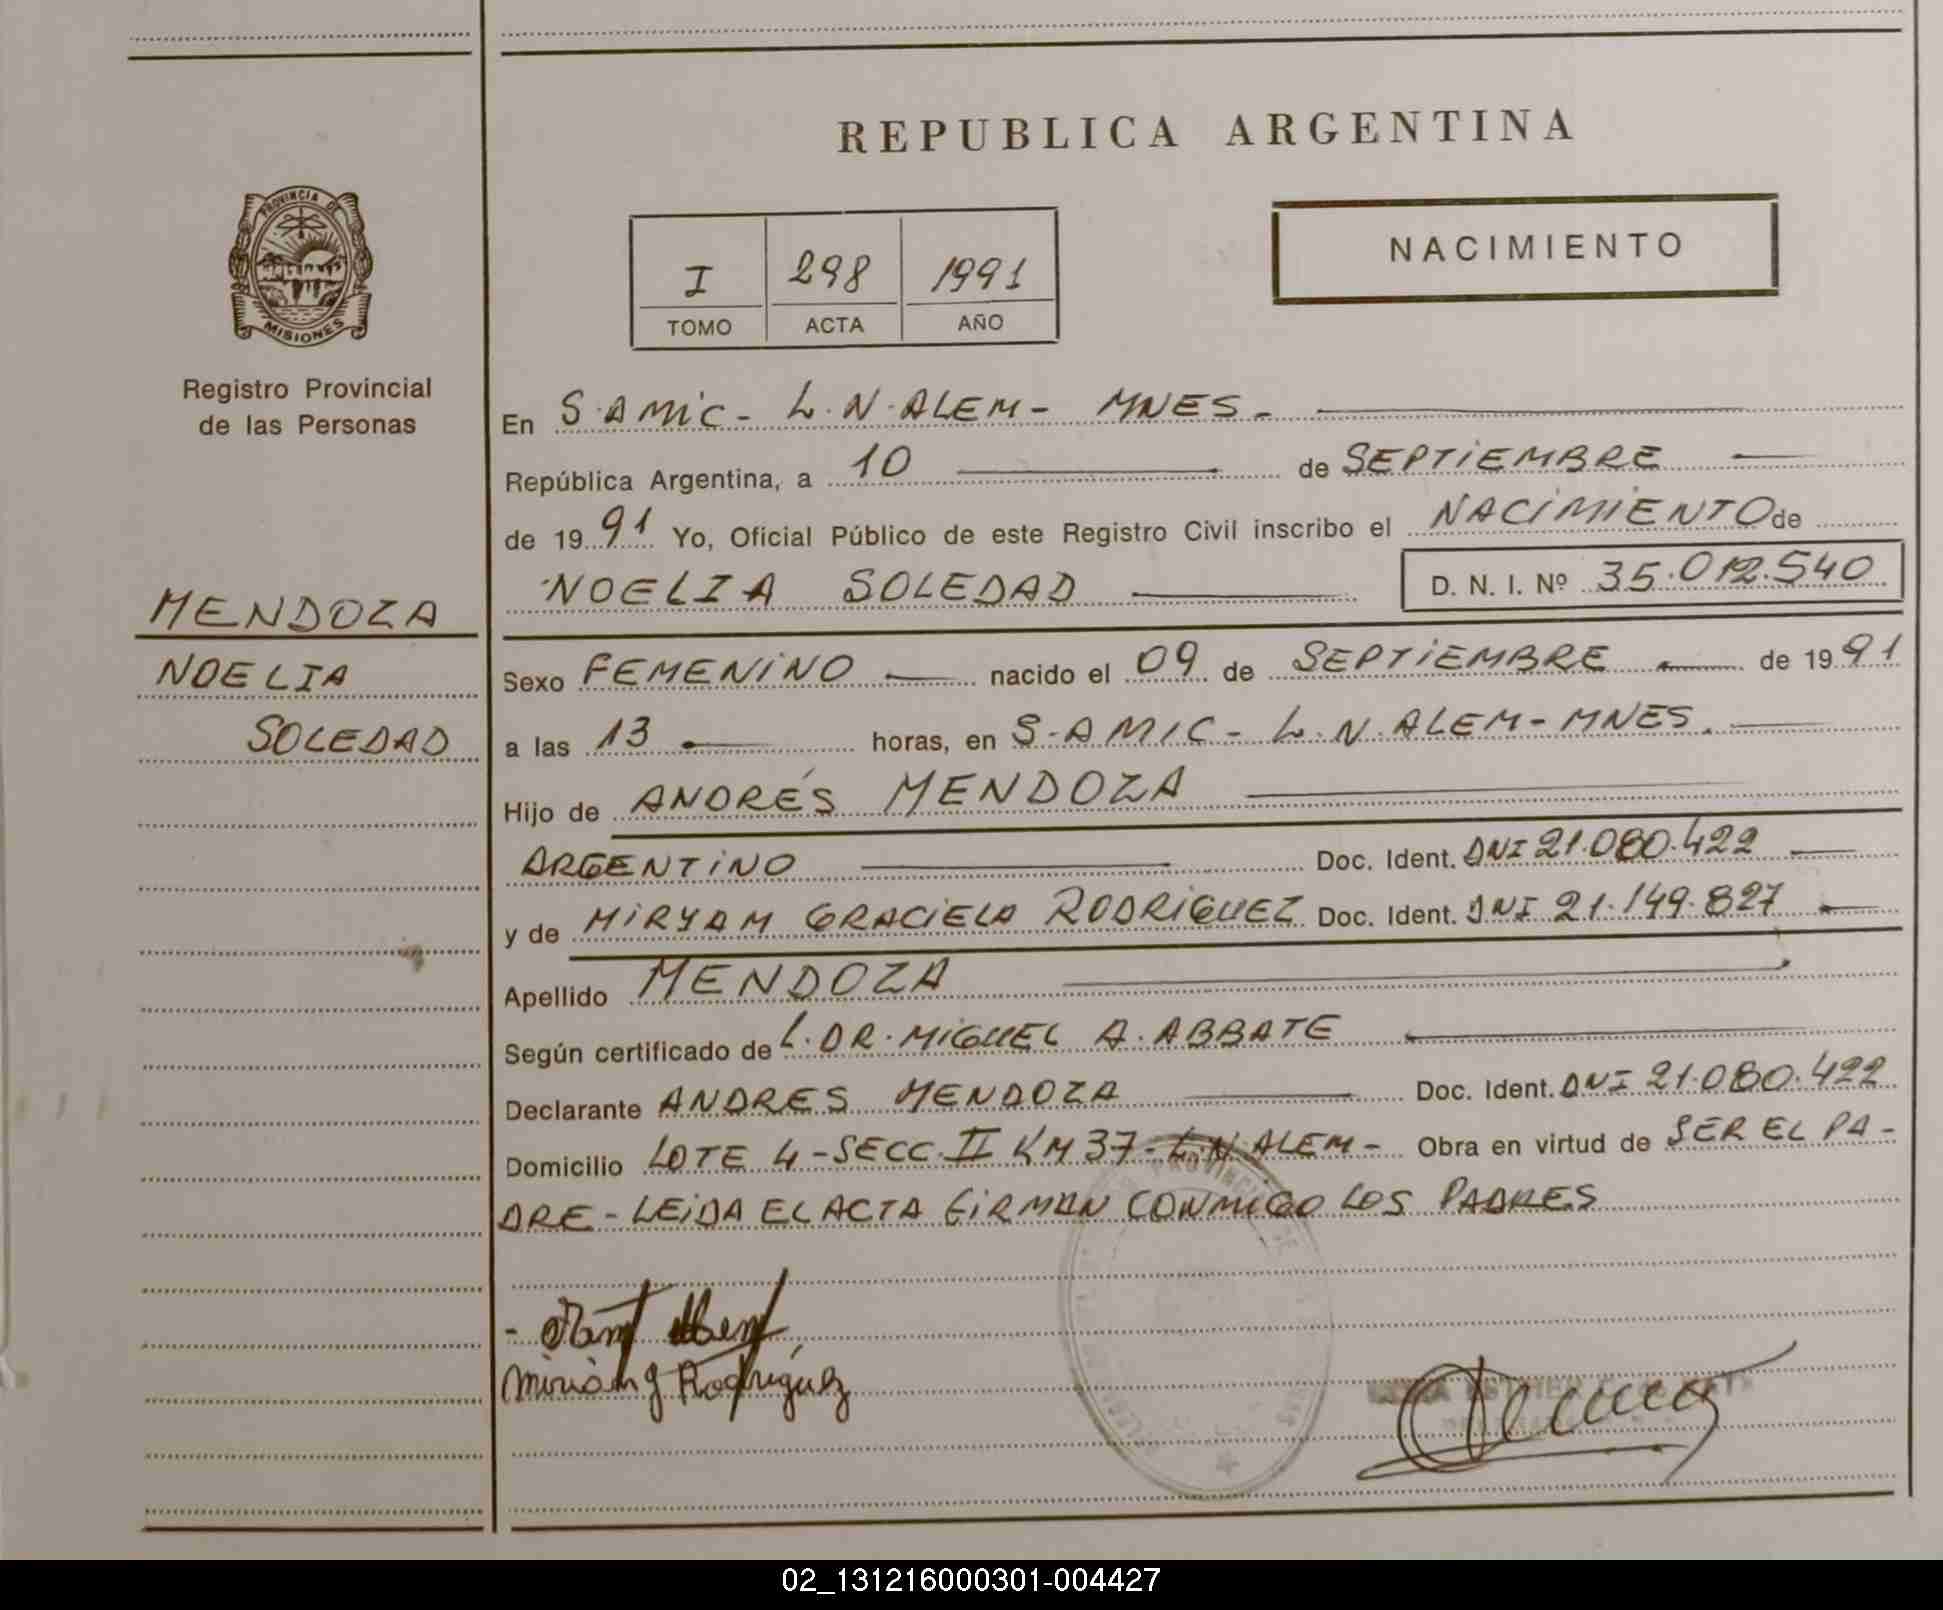 REPUBLICA ARGENTINA
PROVINCIA DE
MISIONES
Registro Provincial
de las Personas
I 298 1991
TOMO ACTA AÑO
NACIMIENTO
En S.AMIC - L.N.ALEM - MNES.
República Argentina, a 10 de SEPTIEMBRE
de 1991 Yo, Oficial Público de este Registro Civil inscribo el NACIMIENTO de
NOELIA SOLEDAD D. N. I. Nº 35.012.540
MENDOZA
NOELIA
SOLEDAD
Sexo FEMENINO nacido el 09 de SEPTIEMBRE de 1991
a las 13 horas, en S.AMIC - L.N.ALEM - MNES.
Hijo de ANDRÉS MENDOZA
ARGENTINO Doc. Ident. DNI 21.080.422
y de MIRYAM GRACIELA RODRIGUEZ Doc. Ident. DNI 21.149.827
Apellido MENDOZA
Según certificado de L.DR.MIGUEL A.ABBATE
Declarante ANDRES MENDOZA Doc. Ident. DNI 21.080.422
Domicilio LOTE 4-SECC.II KM 37-L.N.ALEM- Obra en virtud de SER EL PA-
DRE - LEIDA EL ACTA FIRMAN CONMIGO LOS PADRES
Miriam G Rodríguez
02_131216000301-004427